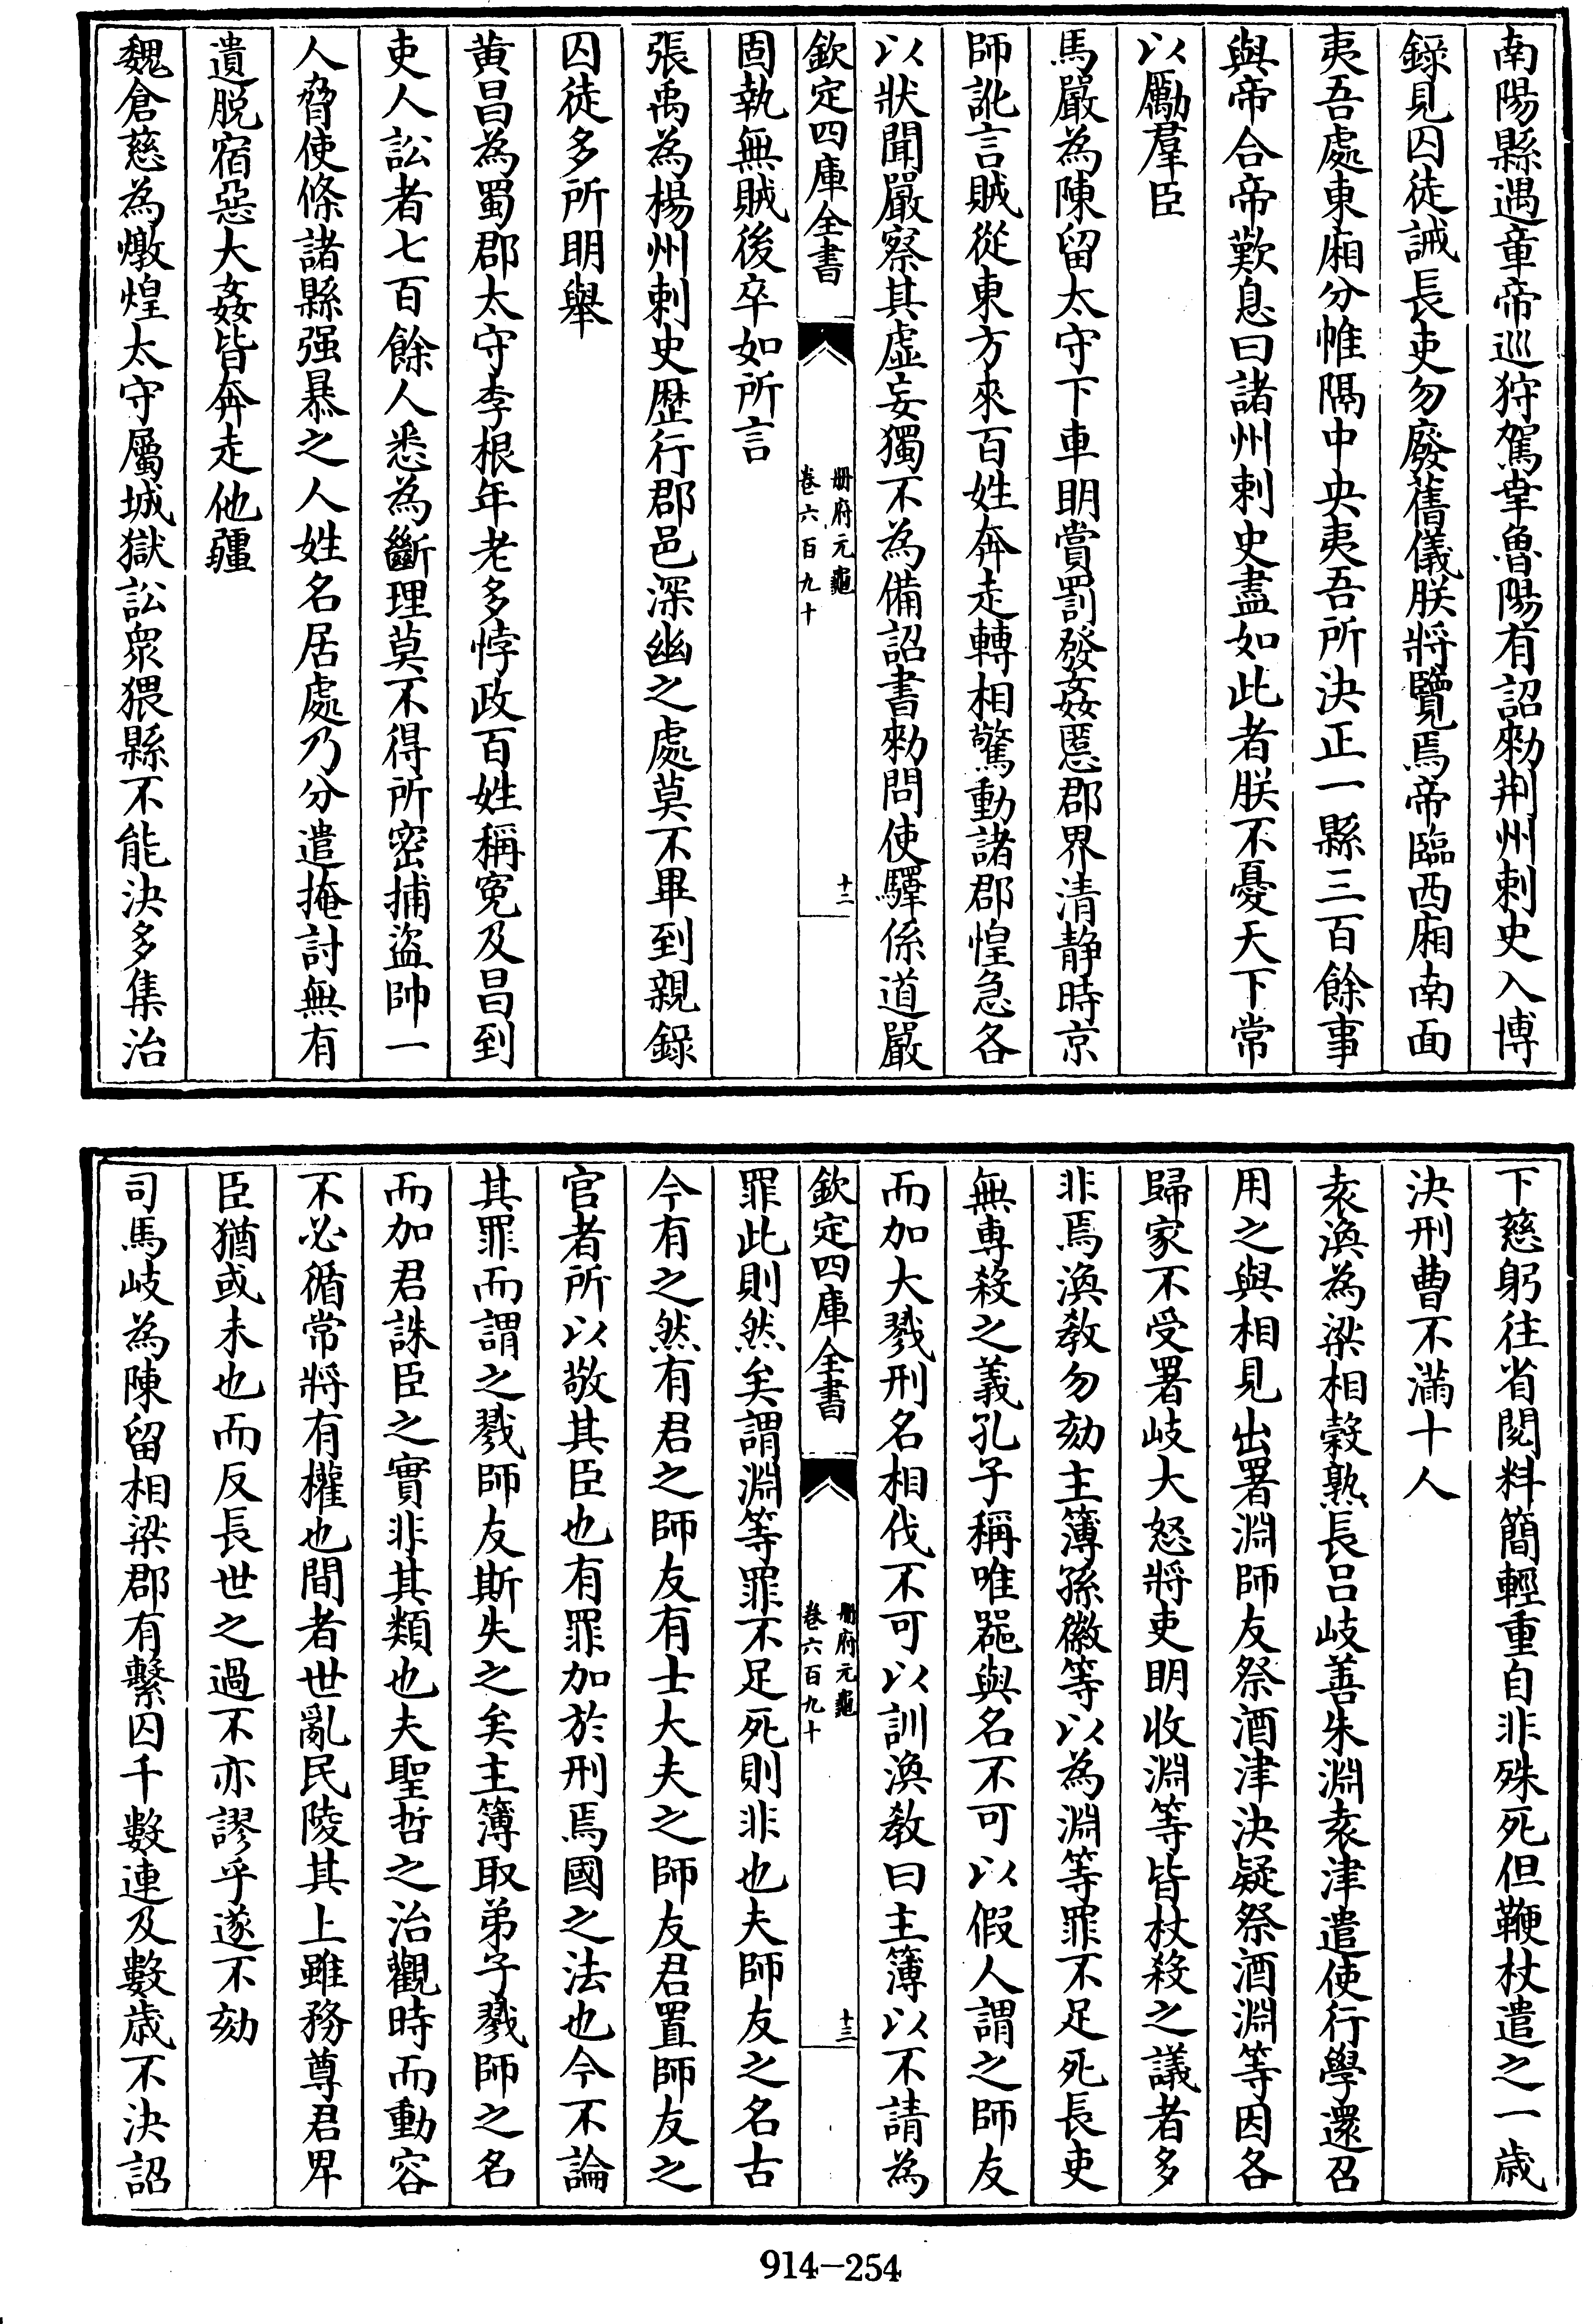 南陽縣遇章帝巡狩駕幸魯陽有詔勑荆州刺史入博
錄見囚徒誡長吏勿廢舊儀朕將覽焉帝臨西廂南面
夷吾處東廂分帷隔中央夷吾所決正一縣三百餘事
與帝合帝歎息曰諸州刺史盡如此者朕不憂天下常
以勵羣臣
馬嚴為陳留太守下車明賞罰發姦慝郡界清静時京
師訛言賊從東方來百姓奔走轉相驚動諸郡惶急各
以狀聞嚴察其虛妄獨不為備詔書勑問使驛係道嚴
欽定四庫全書
冊府元龜
卷六百九十
十二
固執無賊後卒如所言
張禹為楊州刺史歷行郡邑深幽之處莫不畢到親錄
囚徒多所明舉
黄昌為蜀郡太守李根年老多悖政百姓稱寃及昌到
吏人訟者七百餘人悉為斷理莫不得所密捕盜帥一
人脅使條諸縣强暴之人姓名居處乃分遣掩討無有
遺脱宿惡大姦皆奔走他疆
魏倉慈為燉煌太守屬城獄訟衆猥縣不能決多集治
下慈躬往省閱料簡輕重自非殊死但鞭杖遣之一歲
決刑曹不滿十人
袁渙為梁相穀熟長吕岐善朱淵袁津遣使行學還召
用之與相見出署淵師友祭酒津決疑祭酒淵等因各
歸家不受署岐大怒將吏明收淵等皆杖殺之議者多
非焉渙教勿劾主簿孫徽等以為淵等罪不足死長吏
無專殺之義孔子稱唯器與名不可以假人謂之師友
而加大戮刑名相伐不可以訓渙教曰主簿以不請為
欽定四庫全書
冊府元龜
卷六百九十
十三
罪此則然矣謂淵等罪不足死則非也夫師友之名古
今有之然有君之師友有士大夫之師友君置師友之
官者所以敬其臣也有罪加於刑焉國之法也今不論
其罪而謂之戮師友斯失之矣主簿取弟子戮師之名
而加君誅臣之實非其類也夫聖哲之治觀時而動容
不必循常將有權也間者世亂民陵其上雖務尊君卑
臣猶或未也而反長世之過不亦謬乎遂不劾
司馬岐為陳留相梁郡有繫囚千數連及數歲不決詔
914-254